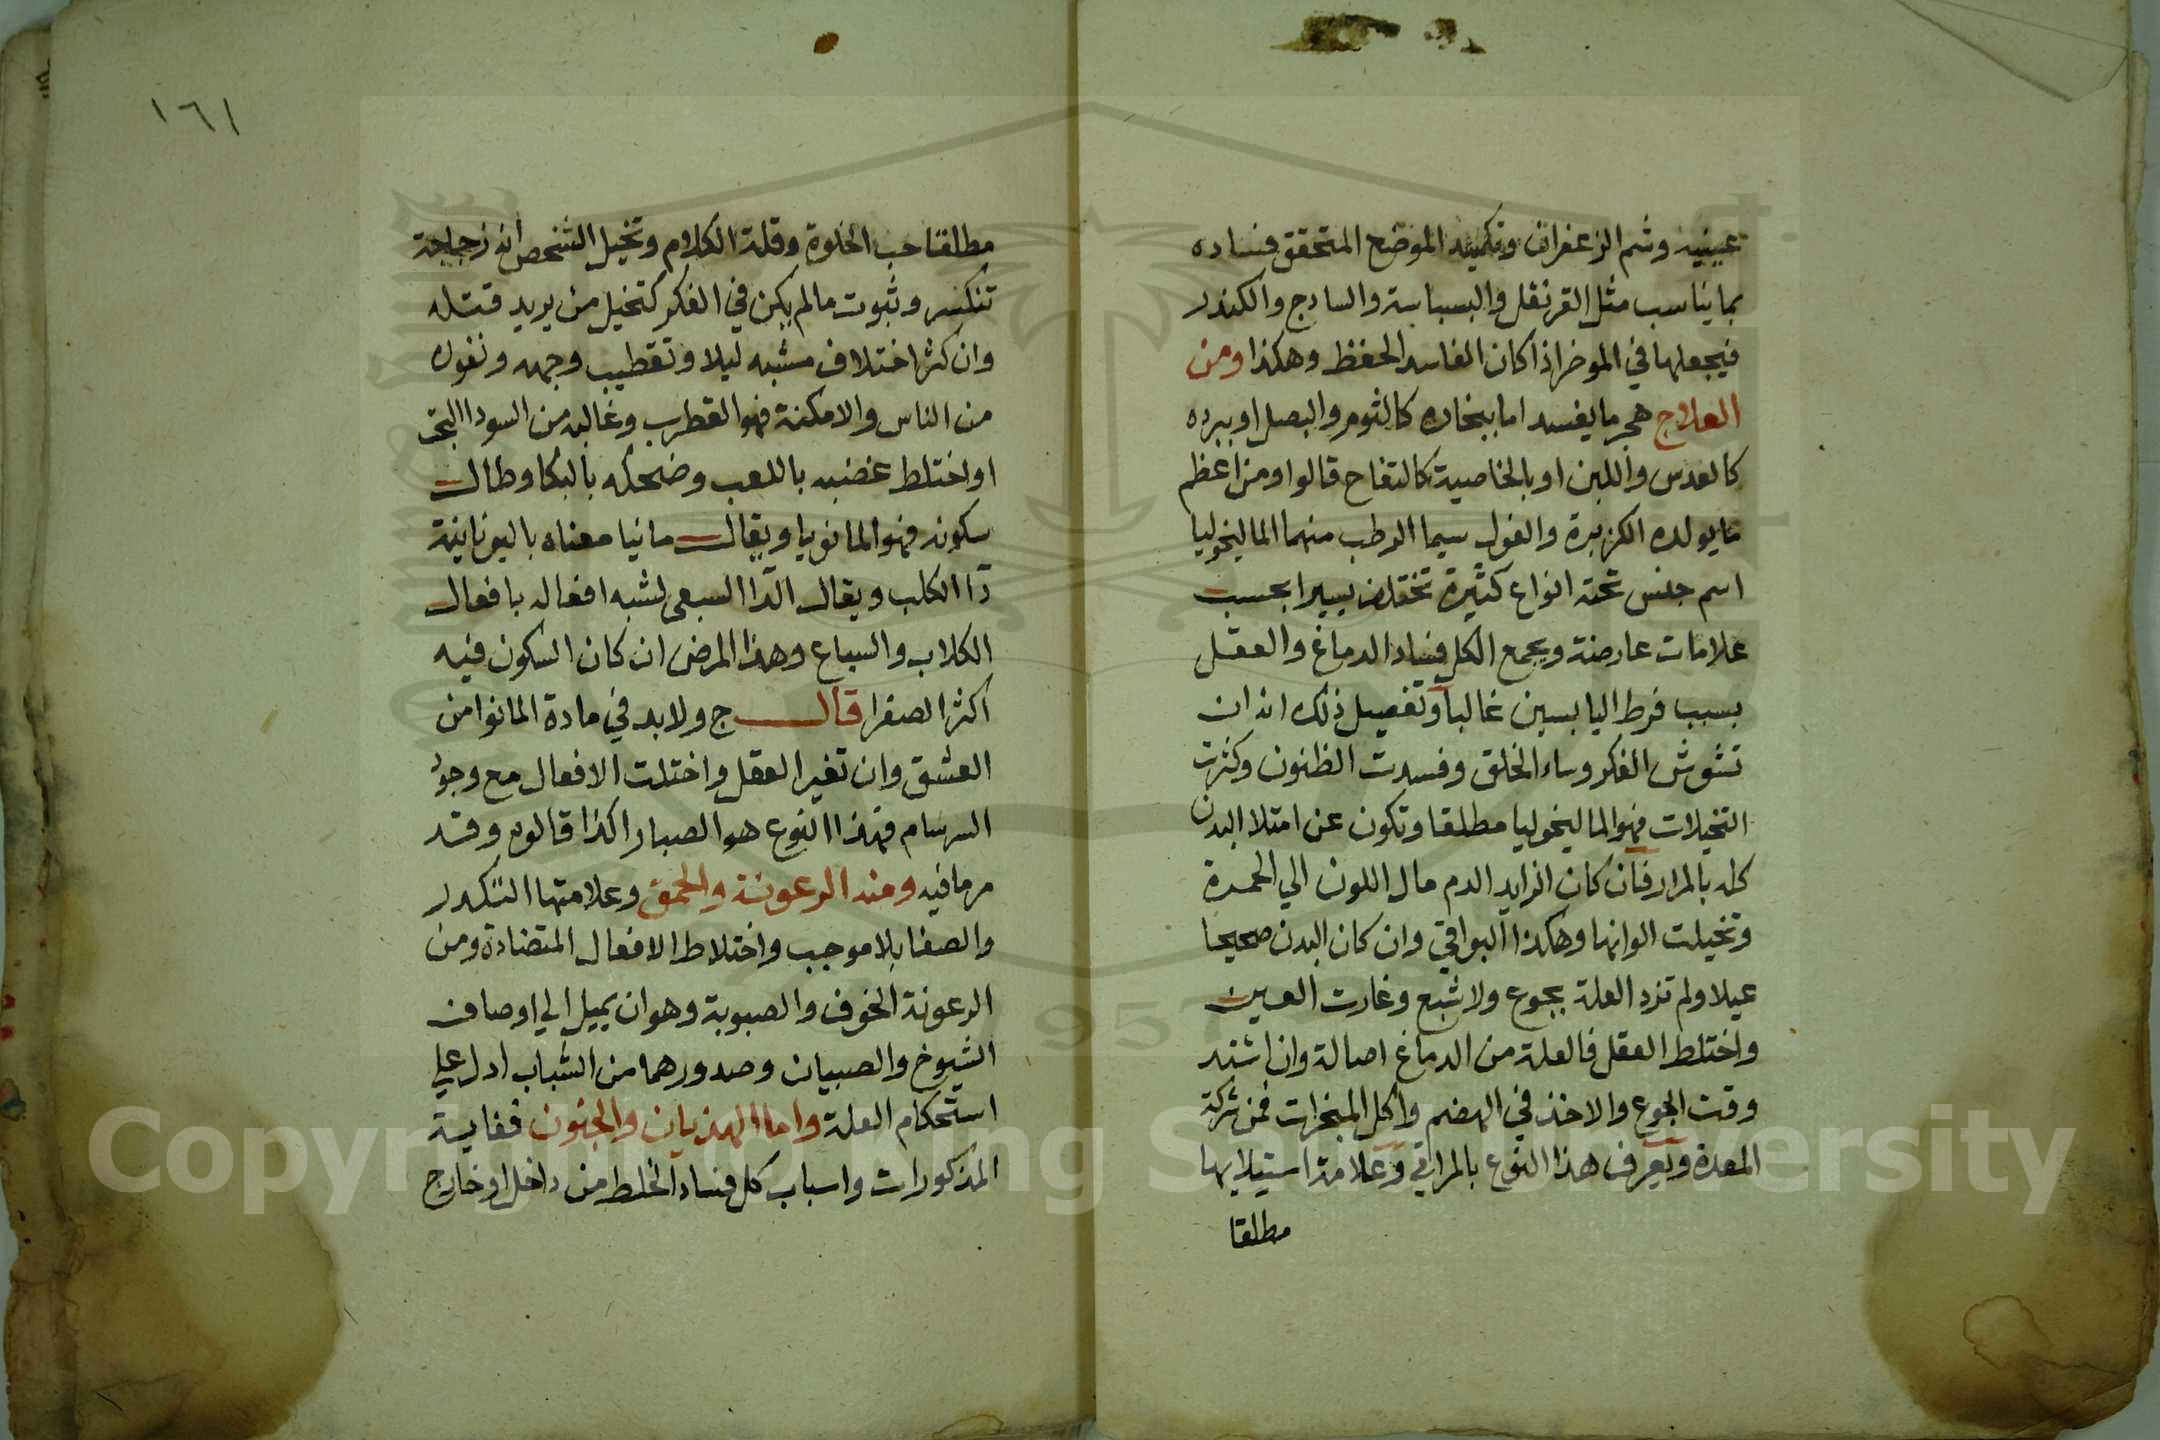 عينيه وشم الزعفران وتكميد الموضع المتحقق فساده
بما يناسب مثل القرنفل والبسباسة والسادج والكندر
فيجعلها في الموخر اذا كان الفاسد الحفظ وهكذا ومن
العلاج هجر ما يفسد اما ببخاره كالثوم والبصل او ببرده
كالعدس واللبن او بالخاصية كالتفاح قالوا ومن اعظم
ما يولده الكزبرة والفول سيما الرطب منهما الماليخوليا
اسم جنس تحته انواع كثيرة تختلف يسيرا بحسب
علامات عارضة ويجمع الكل فساد الدماغ والعقل
بسبب فرط اليابسين غالبا وتفصيل ذلك انه ان
تشوش الفكر وساء الخلق وفسدت الظنون وكثرت
التخيلات فهو الماليخوليا مطلقا وتكون عن امتلا البدن
كله بالمرار فان كان الزايد الدم مال اللون الي الحمرة
وتخيلت الوانها وهكذا البواقي وان كان البدن صحيحا
عيلا ولم تزد العلة بجوع ولا شبع وغارت العين
واختلط العقل فالعلة من الدماغ اصالة وان اشتد
وقت الجوع والاخذ في الهضم واكل المبخرات فمن شركة
المعدة ويعرف هذا النوع بالمراقي وعلامة استيلايها
مطلقا
١٦١
مطلقا حب الخلوة وقلة الكلام وتخيل الشخص انه زجاجة
تنكسر وثبوت مالم يكن في الفكر كتخيل من يريد قتله
وان كثر اختلاف مشبه ليلا وتقطيب وجهه ونفوره
من الناس والامكنة فهو القطرب وغالبه من السودا البحت
او اختلط غضبه باللعب وضحكه بالبكا وطال
سكونه فهو المانويا ويقال مانيا معناه باليونانية
دا الكلب ويقال الدا السبعي لشبه افعاله بافعال
الكلاب والسباع وهذا المرض ان كان السكون فيه
اكثر الصفرا قال ج ولابد في مادة المانوا من
العشق وان تغير العقل واختلت الافعال مع وجود
السرسام فهذا النوع هو الصبارا كذا قالوه وقد
مر مافيه ومنه الرعونة والحمق وعلامتها التكدر
والصفا بلا موجب واختلاط الافعال المتضادة ومن
الرعونة الخوف والصبوبة وهو ان يميل الي اوصاف
الشيوخ والصبيان وصدورهما من الشباب ادل علي
استحكام العلة واما الهذيان والجنون فغاية
المذكورات واسباب كل فساد الخلط من داخل او خارج
Copyright © King Saud University
1957